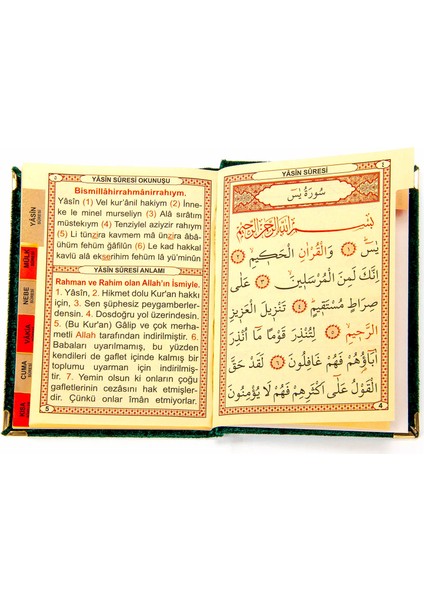 ٤
YÂSÎN SÛRESİ
سُورَةُ يٰسٓ
بِسْمِ اللّٰهِ الرَّحْمٰنِ الرَّحِيمِ
يٰسٓ ﴿١﴾ وَالْقُرْاٰنِ الْحَكِيمِ ﴿٢﴾
اِنَّكَ لَمِنَ الْمُرْسَلِينَ ﴿٣﴾ عَلٰى
صِرَاطٍ مُسْتَقِيمٍ ﴿٤﴾ تَنْزِيلَ الْعَزِيزِ
الرَّحِيمِ ﴿٥﴾ لِتُنْذِرَ قَوْمًا مَٓا اُنْذِرَ
اٰبَٓاؤُ۬هُمْ فَهُمْ غَافِلُونَ ﴿٦﴾ لَقَدْ حَقَّ
الْقَوْلُ عَلٰٓى اَكْثَرِهِمْ فَهُمْ لَا يُؤْمِنُونَ
4
٥
YÂSÎN SÛRESİ OKUNUŞU
Bismillâhirrahmânirrahıym.
Yâsîn (1) Vel kur'ânil hakiym (2) İnne-
ke le minel murseliyn (3) Alâ sırâtım
müstekıym (4) Tenziylel aziyzir rahıym
(5) Li tünzira kavmem mâ ünzira âbâ-
ühüm fehüm ğâfilûn (6) Le kad hakkal
kavlü alâ ekserihim fehüm lâ yü'minûn
YÂSÎN SÛRESİ ANLAMI
Rahman ve Rahim olan Allah'ın İsmiyle.
1. Yâsîn, 2. Hikmet dolu Kur'an hakkı
için, 3. Sen şüphesiz peygamberler-
densin. 4. Dosdoğru yol üzerindesin.
5. (Bu Kur'an) Gâlip ve çok merha-
metli Allah tarafından indirilmiştir. 6.
Babaları uyarılmamış, bu yüzden
kendileri de gaflet içinde kalmış bir
toplumu uyarman için indirilmiş-
tir. 7. Yemin olsun ki onların çoğu
gafletlerinin cezâsını hak etmişler-
dir. Çünkü onlar îmân etmiyorlar.
5
YÂSÎN
SÛRESİ
MÜLK
SÛRESİ
NEBE
SÛRESİ
VÂKIA
SÛRESİ
CUMA
SÛRESİ
KISA